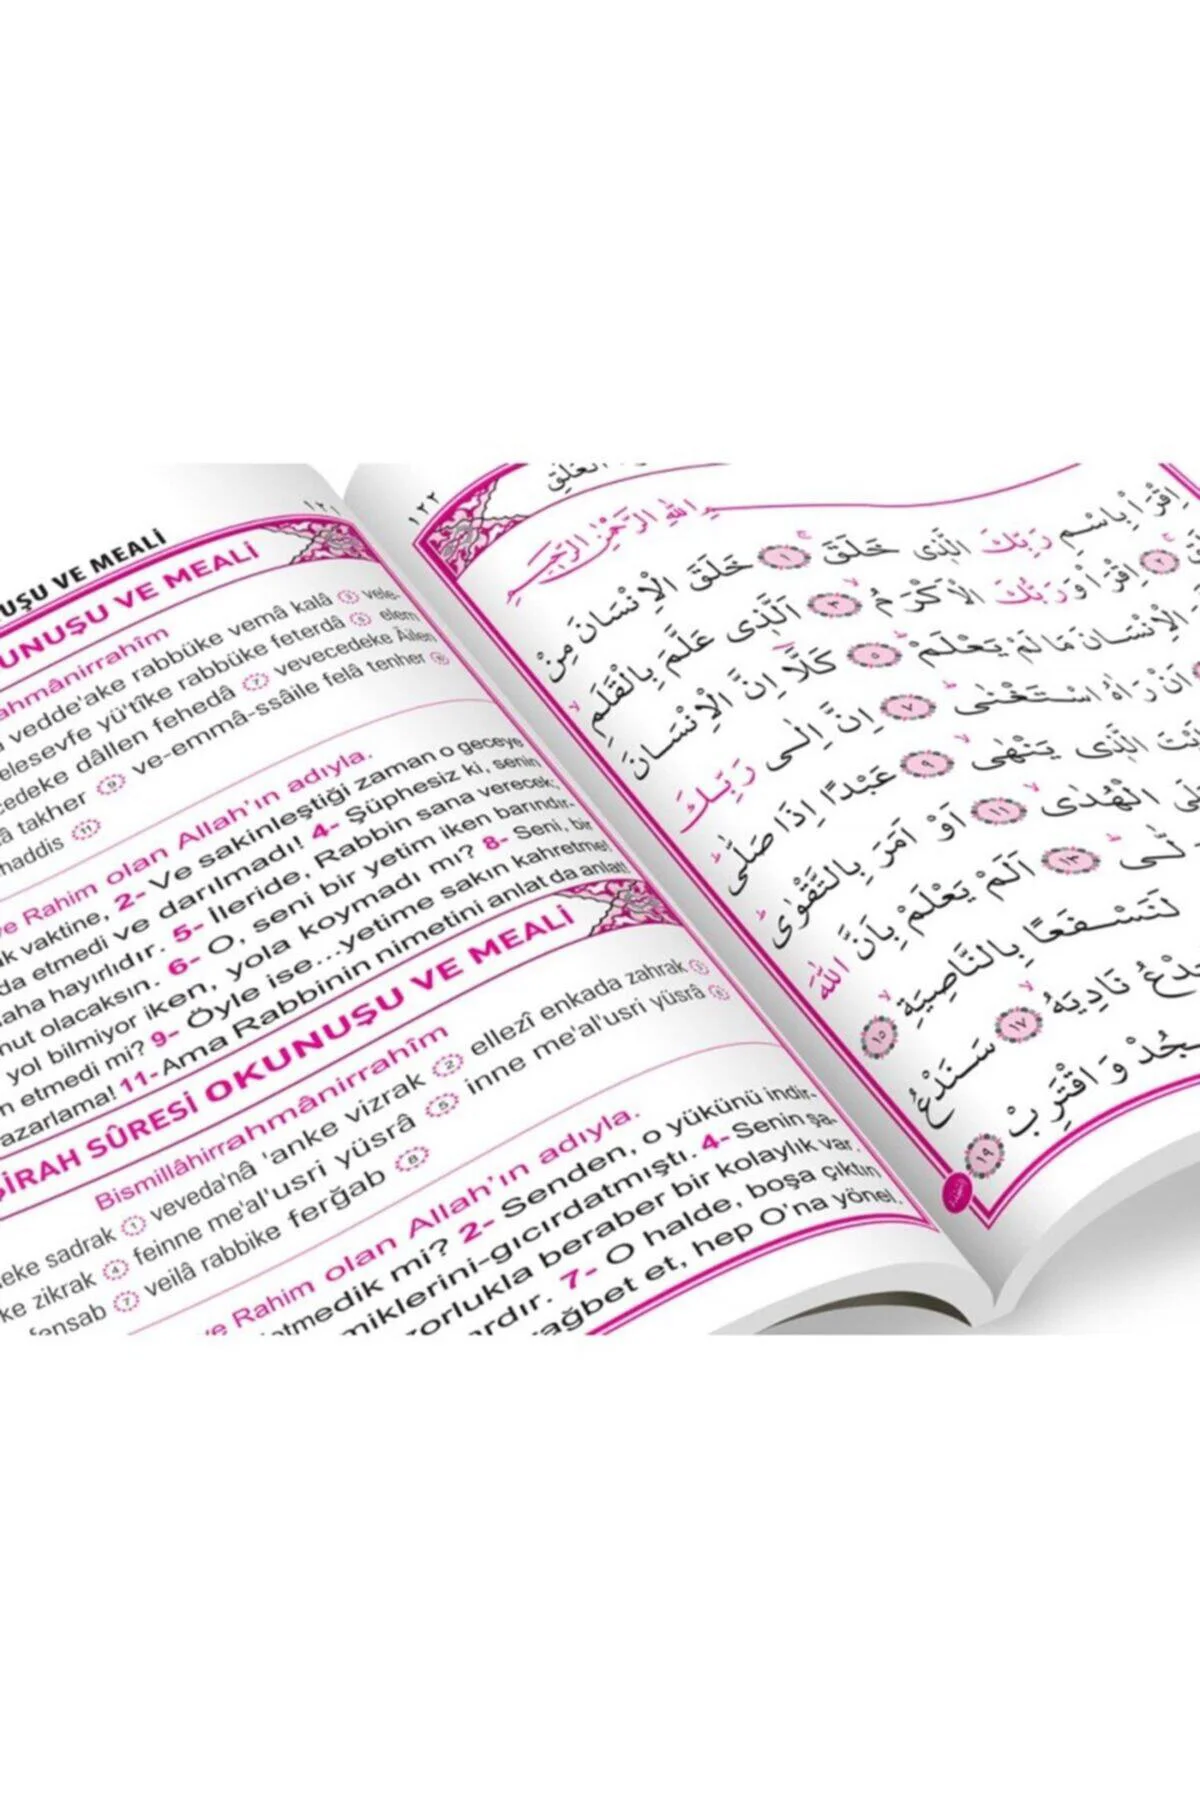 ١٢١
UŞU VE MEALİ
UNUŞU VE MEALİ
ahmânirrahîm
vedde'ake rabbüke vemâ kalâ 3 vele-
elesevfe yü'tîke rabbüke feterdâ 5 elem
cedeke dâllen fehedâ 7 vevecedeke Âilen
â takher 9 ve-emmâ-ssâile felâ tenher 10
haddis 11
ve Rahim olan Allah'ın adıyla.
k vaktine, 2- Ve sakinleştiği zaman o geceye
da etmedi ve darılmadı! 4- Şüphesiz ki, senin
aha hayırlıdır. 5- İleride, Rabbin sana verecek;
nut olacaksın. 6- O, seni bir yetim iken barındır-
yol bilmiyor iken, yola koymadı mı? 8- Seni, bir
n etmedi mi? 9- Öyle ise...yetime sakın kahretme!
azarlama! 11- Ama Rabbinin nimetini anlat da anlat!
ŞİRAH SÛRESİ OKUNUŞU VE MEALİ
Bismillâhirrahmânirrahîm
leke sadrak 1 veveda'nâ 'anke vizrak 2 ellezî enkada zahrak 3
ke zikrak 4 feinne me'al'usri yüsrâ 5 inne me'al'usri yüsrâ 6
fensab 7 veilâ rabbike ferğab 8
ve Rahim olan Allah'ın adıyla.
etmedik mi? 2- Senden, o yükünü indir-
miklerini-gıcırdatmıştı. 4- Senin şa-
zorlukla beraber bir kolaylık var.
ardır. 7- O halde, boşa çıktın
ağbet et, hep O'na yönel.
١٢٢
الْعَلَقِ
اللهِ الرَّحْمٰنِ الرَّحٖيمِ
اِقْرَاْ بِاسْمِ رَبِّكَ الَّذٖى خَلَقَ ١ خَلَقَ الْاِنْسَانَ مِنْ
٢ اِقْرَاْ وَرَبُّكَ الْاَكْرَمُ ٣ اَلَّذٖى عَلَّمَ بِالْقَلَمِ
الْاِنْسَانَ مَا لَمْ يَعْلَمْ ٥ كَلَّا اِنَّ الْاِنْسَانَ
اَنْ رَاٰهُ اسْتَغْنٰى ٧ اِنَّ اِلٰى رَبِّكَ
الَّذٖى يَنْهٰى ٩ عَبْدًا اِذَا صَلّٰى
الْهُدٰى ١١ اَوْ اَمَرَ بِالتَّقْوٰى
١٣ اَلَمْ يَعْلَمْ بِاَنَّ اللّٰهَ
لَنَسْفَعًا بِالنَّاصِيَةِ ١٥
نَادِيَهُ ١٧ سَنَدْعُ
وَاقْتَرِبْ ١٩